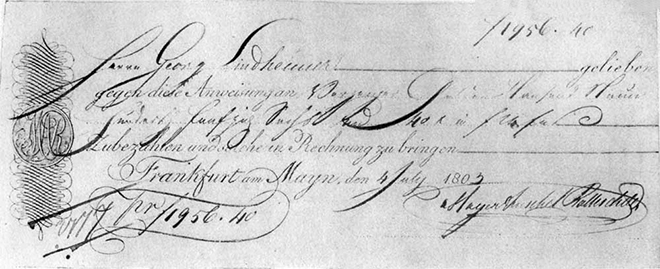 f 1956.40
Herrn Georg Lindheimer geliebe
gegen diese Anweisung an Tausend Neun
hundert fünfzig Sechs und 40 x in
Zubezahlen und solche in Rechnung zu bringen
Frankfurt am Mayn, den 4 July 1803
pr f 1956.40
Mayer Amschel Rothschild
MAR